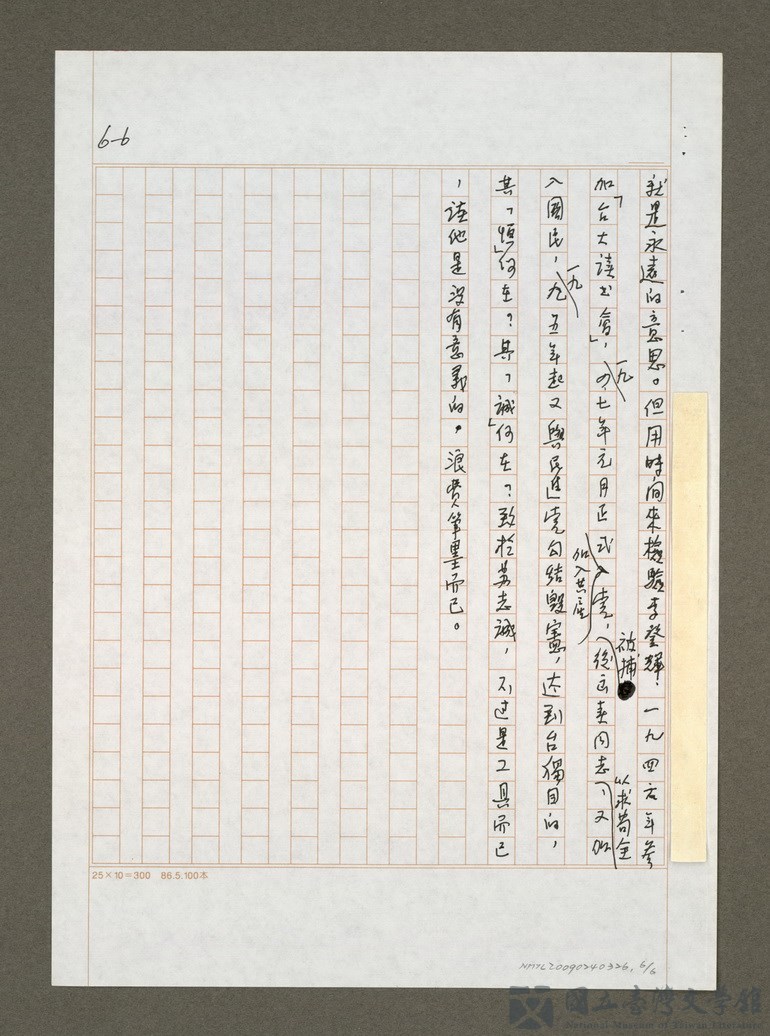 6-6
就是永遠的意思。但用時間來檢驗李登輝,一九四六年參
加「台大讀書會」,一九四七年元月正式加入共產黨,被捕後出賣同志,以求苟全又加
入國民,一九九五年起又與民進党勾結毀憲,达到台獨目的,
其「恒」何在?其「誠」何在?致於苏志誠,不过是工具而已
,談他是沒有意義的。浪費筆墨而已。
25×10=300 86.5.100本
NMTL20090240326, 6/6
國立臺灣文學館
National Museum of Taiwan Literature